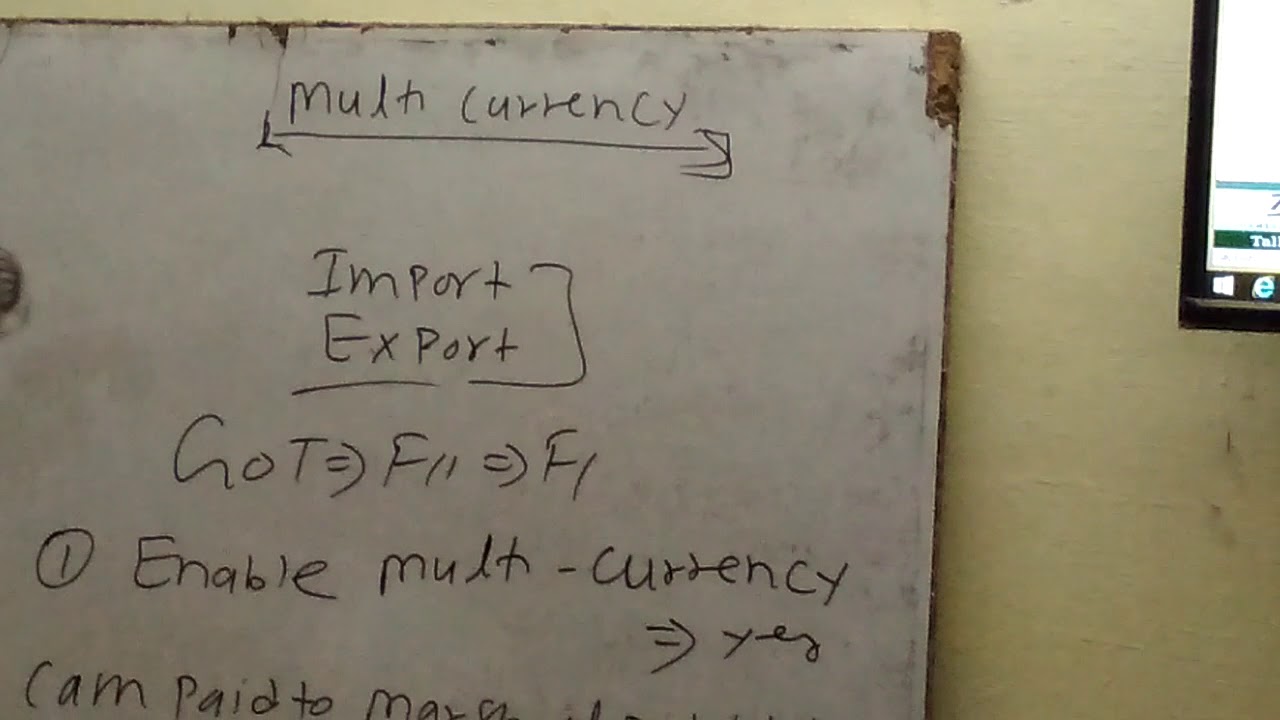 Multi currency
Import
Export
GOT ⇒ F11 ⇒ F1
① Enable multi - currency
⇒ yes
am paid to
Tal